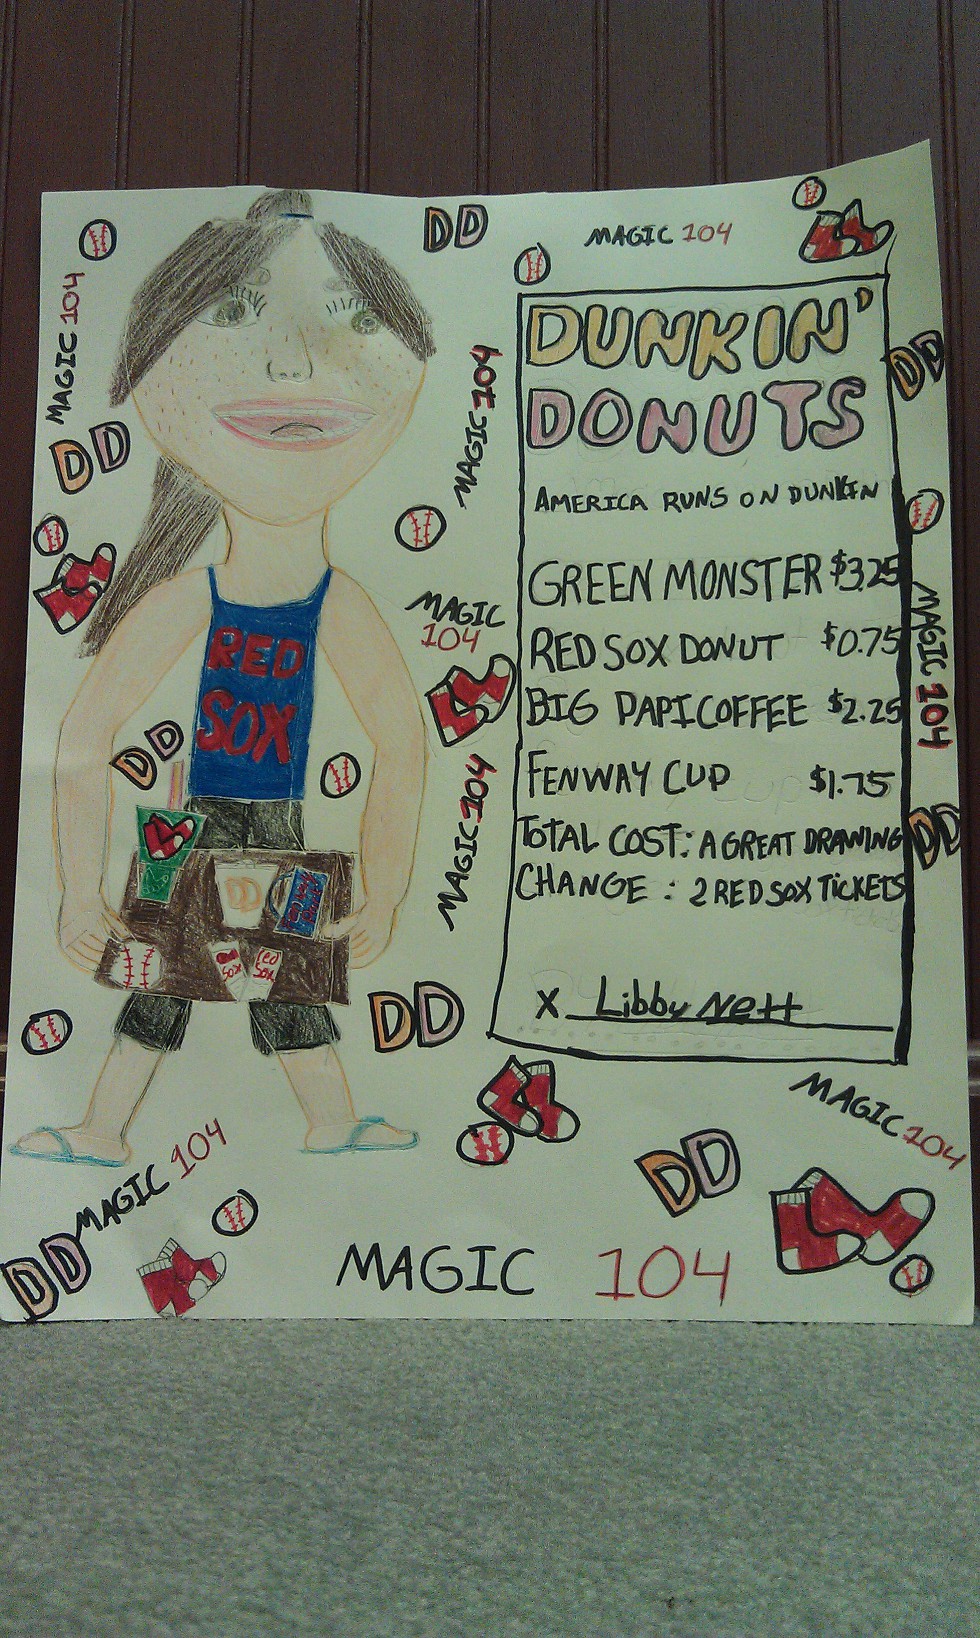 DD
MAGIC 104
MAGIC 104
DD
MAGIC 104
DUNKIN'
DONUTS
AMERICA RUNS ON DUNKIN
GREEN MONSTER $3.25
RED SOX DONUT $0.75
BIG PAPI COFFEE $2.25
FENWAY CUP $1.75
TOTAL COST: A GREAT DRAWING
CHANGE : 2 RED SOX TICKETS
X Libby Nett
DD
MAGIC
104
RED
SOX
DD
MAGIC 104
DD
SOX
RED
SOX
DD
MAGIC 104
DD
MAGIC 104
DD
MAGIC 104
DD
DD
MAGIC 104
MAGIC 104